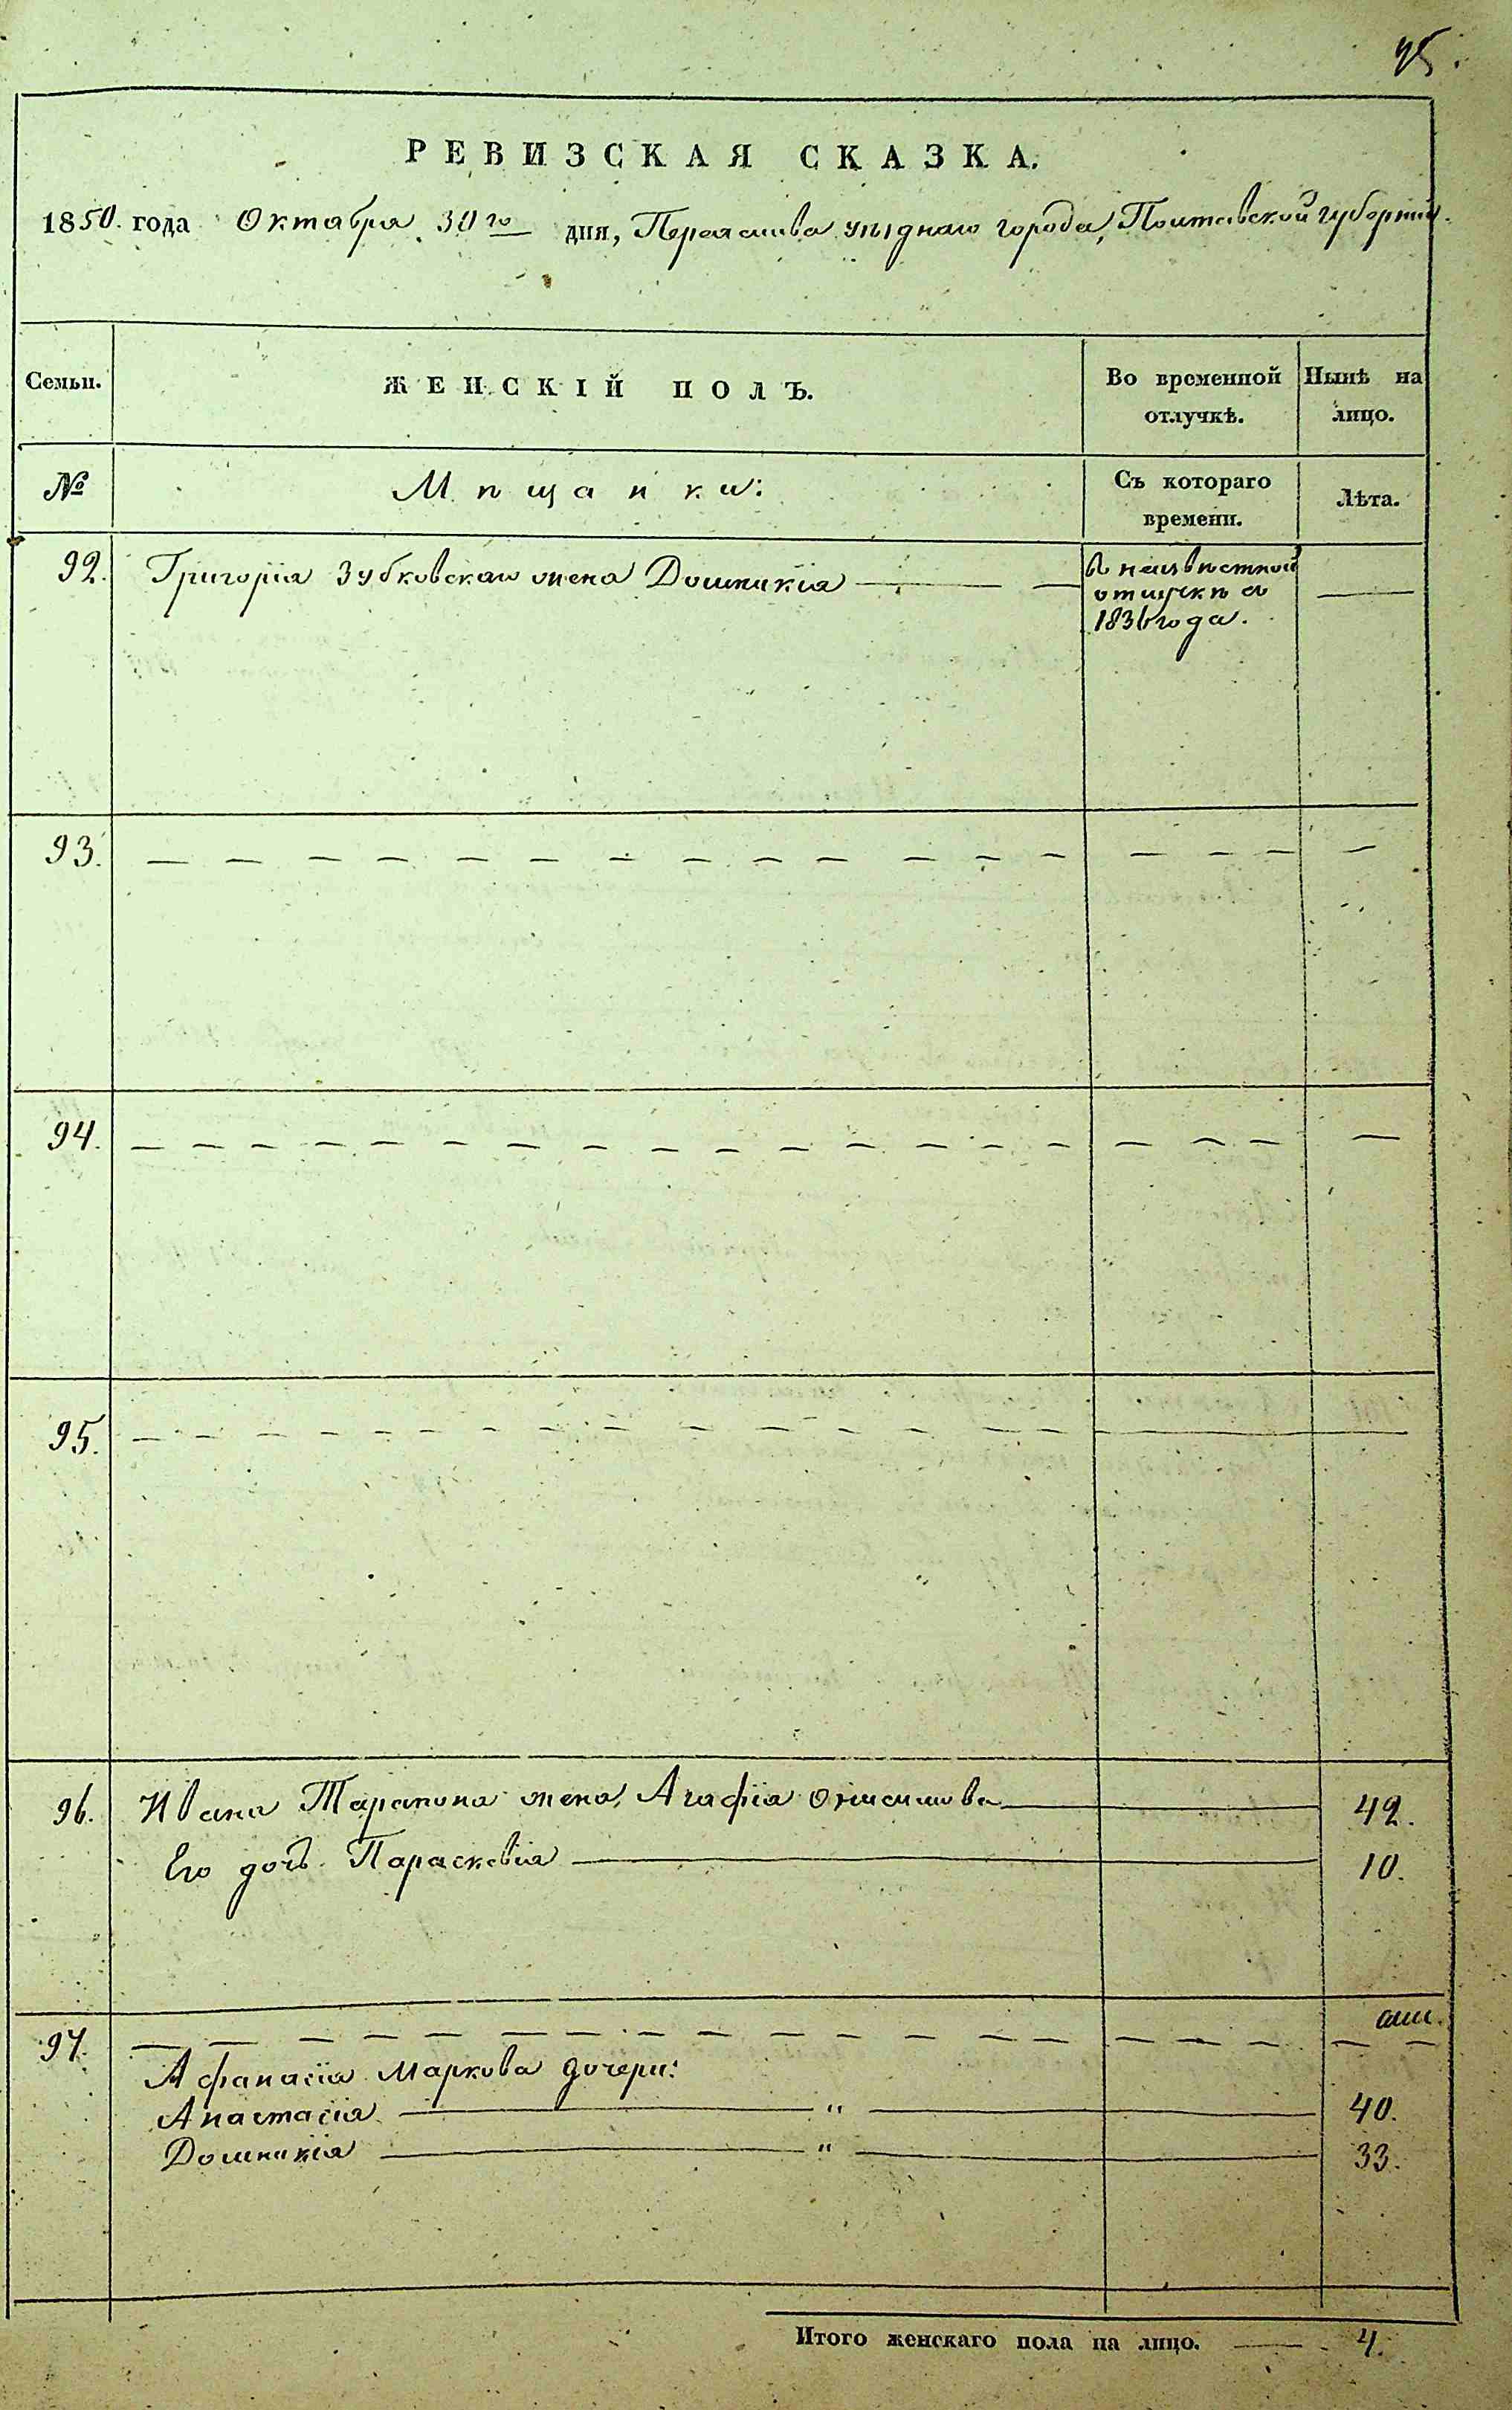 РЕВИЗСКАЯ СКАЗКА.
1850. года Октября 30го дня, Переяслава уѣзднаго города, Полтавской губерніи.
Семьи. ЖЕНСКІЙ ПОЛЪ. Во временной отлучкѣ. Нынѣ на лицо.
№ Мѣщанки: Съ котораго времени. Лѣта.
92. Григорія Зубковскаго жена Домникія — въ неизвѣстной —
отлучкѣ съ
1836 года.
93. — — —
94. — — —
95. — — —
96. Ивана Таранона жена, Агафія Онисимова — 42.
Его дочь Параскевія — 10.
97. — — —
Афанасія Маркова дочери:
Анастасія — " — 40.
Домникія — " — 33.
Итого женскаго пола на лицо. — 4.